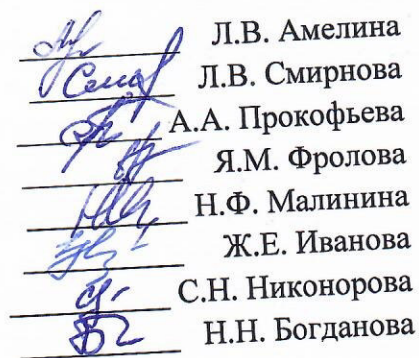 Л.В. Амелина
Л.В. Смирнова
А.А. Прокофьева
Я.М. Фролова
Н.Ф. Малинина
Ж.Е. Иванова
С.Н. Никонорова
Н.Н. Богданова